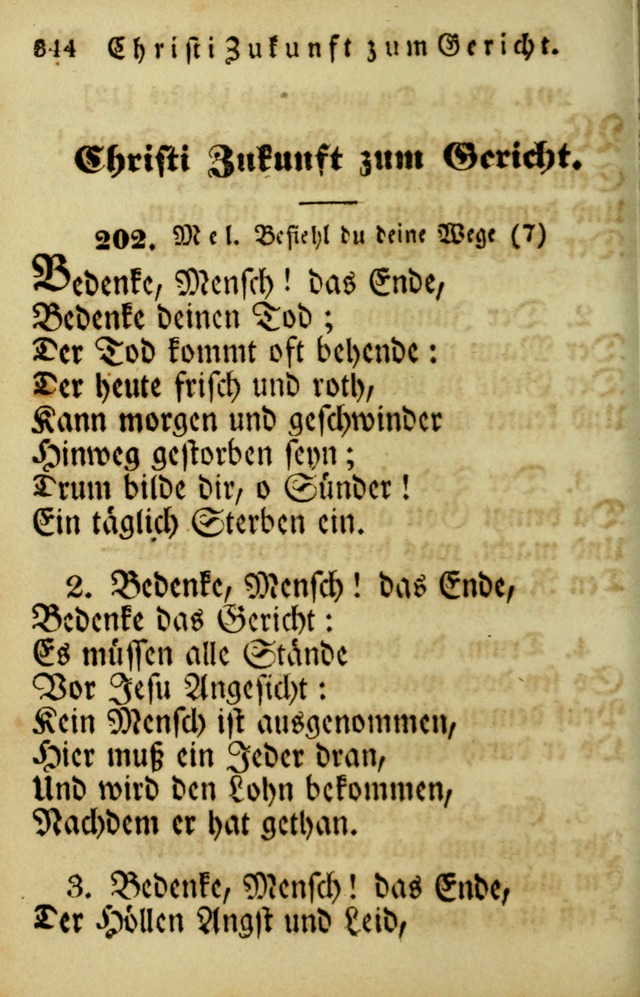 344 Christi Zukunft zum Gericht.
Christi Zukunft zum Gericht.
202. Mel. Befiehl du deine Wege (7)
Bedenke, Mensch! das Ende,
Bedenke deinen Tod;
Der Tod kommt oft behende:
Der heute frisch und roth,
Kann morgen und geschwinder
Hinweg gestorben seyn;
Drum bilde dir, o Sünder!
Ein täglich Sterben ein.
2. Bedenke, Mensch! das Ende,
Bedenke das Gericht:
Es müssen alle Stände
Vor Jesu Angesicht:
Kein Mensch ist ausgenommen,
Hier muß ein Jeder dran,
Und wird den Lohn bekommen,
Nachdem er hat gethan.
3. Bedenke, Mensch! das Ende,
Der Höllen Angst und Leid,